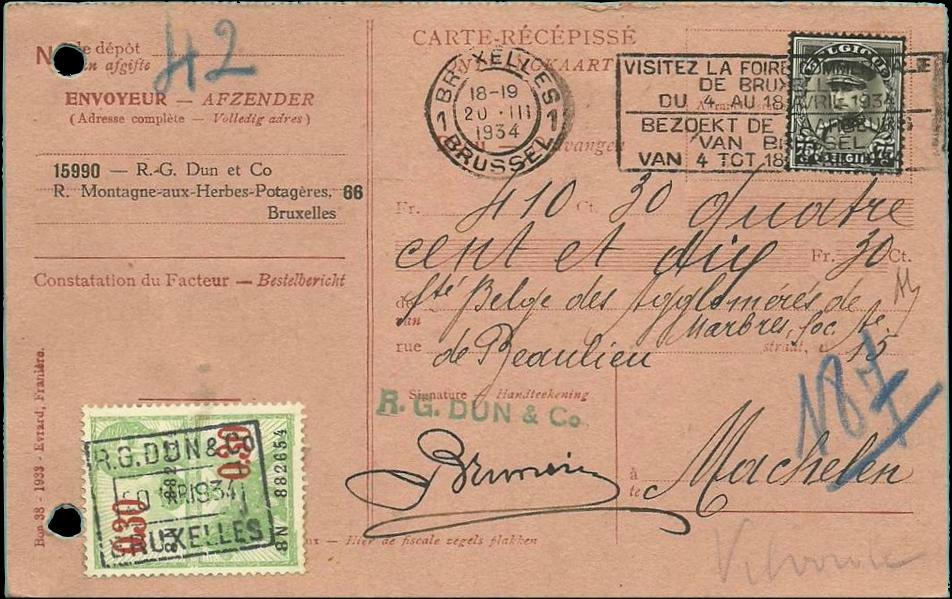 CARTE-RÉCÉPISSÉ
de dépôt
42
afgifte
ENVOYEUR — AFZENDER
(Adresse complète — Volledig adres)
15990 — R.-G. Dun et Co
R. Montagne-aux-Herbes-Potagères, 66
Bruxelles
Constatation du Facteur — Bestelbericht
BRUXELLES
18-19
20 III
1934
1 1
BRUSSEL
VISITEZ LA FOIRE COMMERCIALE
DE BRUXELLES
DU 4 AU 18 AVRIL 1934
BEZOEKT DE
VAN BRUSSEL
VAN 4 TOT 18
BELGIQUE
75 75
BELGIE
Fr. 410 Ct. 30 quatre
cent et dix Fr. 30 Ct.
de Sté Belge des Agglomérés de
van Marbres,
rue de Beaulieu straat, 15
Signature — Handteekening
R. G. DUN & Co
187
à
te Machelen
Vilvorde
R.G. DUN & Co
1934
BRUXELLES
0.30
0.30
8N 882654
Hier de fiscale zegels plakken
Bon 38 - 1933 - Evrard, Franière.